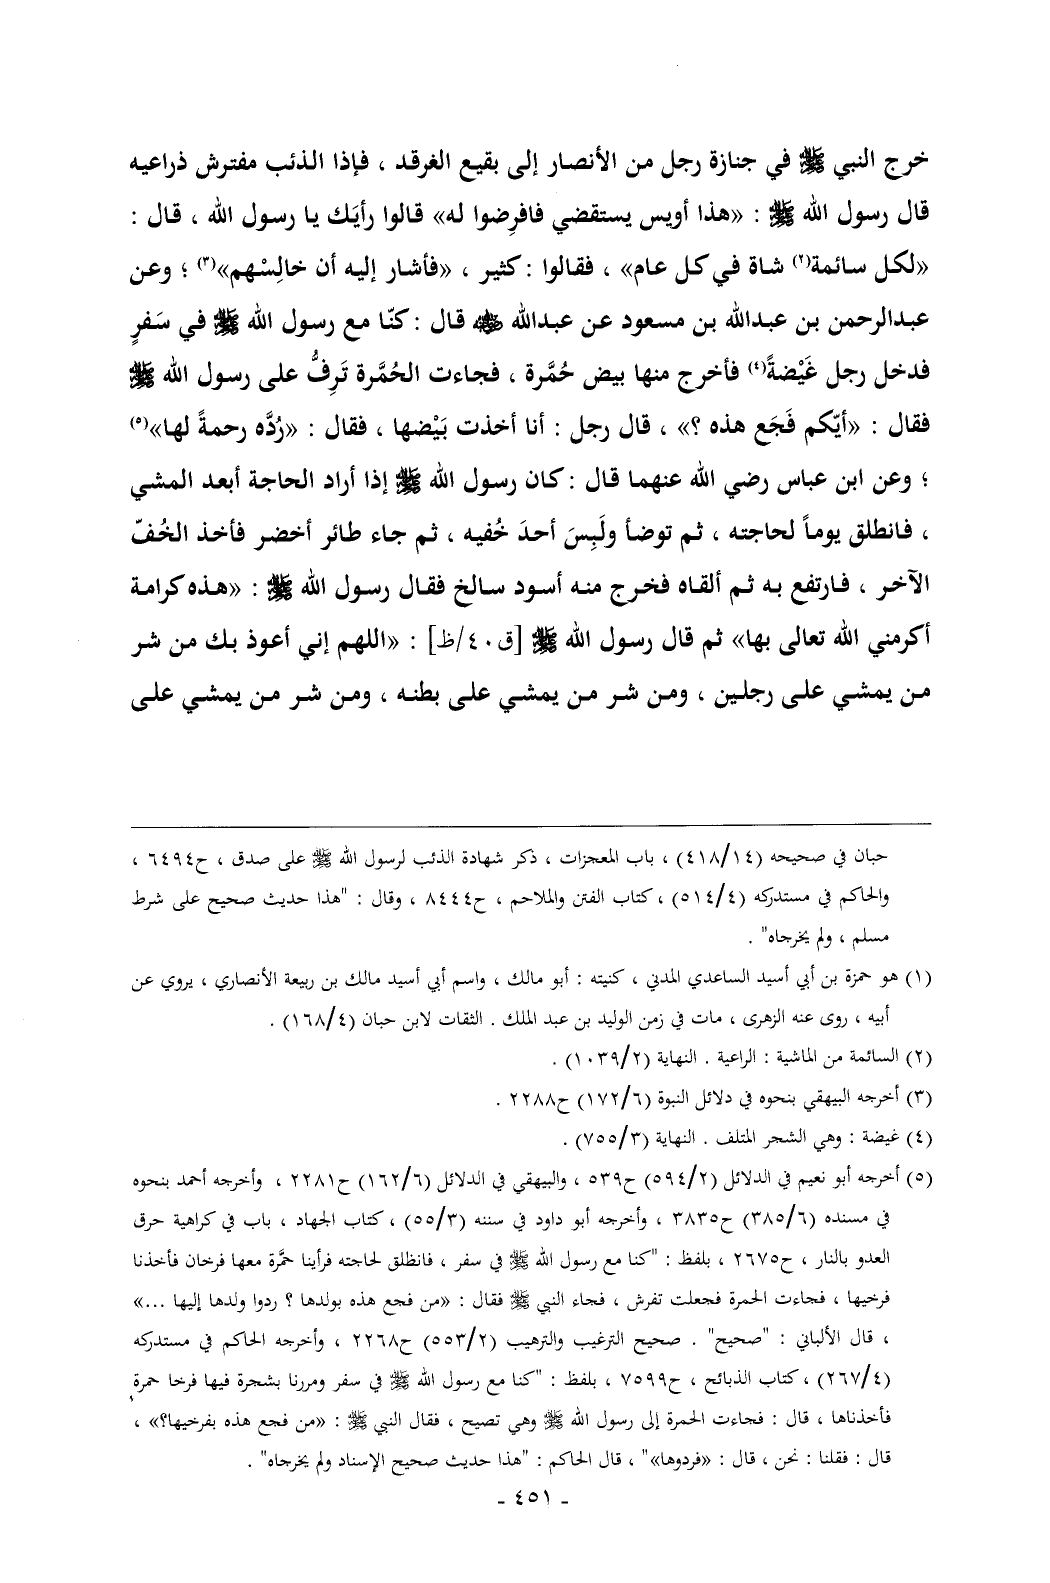 خرج النبي ﷺ في جنازة رجل من الأنصار إلى بقيع الغرقد ، فإذا الذئب مفترش ذراعيه
قال رسول الله ﷺ : «هذا أويس يستقضي فافرِضوا له» قالوا رأيَك يا رسول الله ، قال :
«لكل سائمة(٢) شاة في كل عام» ، فقالوا : كثير ، «فأشار إليه أن خالِسْهم»(٣) ؛ وعن
عبدالرحمن بن عبدالله بن مسعود عن عبدالله ﷺ قال : كنّا مع رسول الله ﷺ في سَفرٍ
فدخل رجل غَيْضةً(٤) فأخرج منها بيض حُمَّرة ، فجاءت الحُمَّرة تَرِفُّ على رسول الله ﷺ
فقال : «أيّكم فَجَع هذه ؟» ، قال رجل : أنا أخذت بَيْضها ، فقال : «رُدَّه رحمةً لها»(٥)
؛ وعن ابن عباس رضي الله عنهما قال : كان رسول الله ﷺ إذا أراد الحاجة أبعد المشي
، فانطلق يوماً لحاجته ، ثم توضأ ولَبِسَ أحدَ خُفيه ، ثم جاء طائر أخضر فأخذ الخُفّ
الآخر ، فارتفع به ثم ألقاه فخرج منه أسود سالخ فقال رسول الله ﷺ : «هذه كرامة
أكرمني الله تعالى بها» ثم قال رسول الله ﷺ [ق٤٠/ظ] : «اللهم إني أعوذ بك من شر
من يمشي على رجلين ، ومن شر من يمشي على بطنه ، ومن شر من يمشي على
حبان في صحيحه (٤١٨/١٤) ، باب المعجزات ، ذكر شهادة الذئب لرسول الله ﷺ على صدق ، ح٦٤٩٤ ،
والحاكم في مستدركه (٥١٤/٤) ، كتاب الفتن والملاحم ، ح٨٤٤٤ ، وقال : "هذا حديث صحيح على شرط
مسلم ، ولم يخرجاه" .
(١) هو حمزة بن أبي أسيد الساعدي المدني ، كنيته : أبو مالك ، واسم أبي أسيد مالك بن ربيعة الأنصاري ، يروي عن
أبيه ، روى عنه الزهرى ، مات في زمن الوليد بن عبد الملك . الثقات لابن حبان (١٦٨/٤) .
(٢) السائمة من الماشية : الراعية . النهاية (١٠٣٩/٢) .
(٣) أخرجه البيهقي بنحوه في دلائل النبوة (١٧٢/٦) ح٢٢٨٨ .
(٤) غيضة : وهي الشجر المتلف . النهاية (٧٥٥/٣) .
(٥) أخرجه أبو نعيم في الدلائل (٥٩٤/٢) ح٥٣٩ ، والبيهقي في الدلائل (١٦٢/٦) ح٢٢٨١ ، وأخرجه أحمد بنحوه
في مسنده (٣٨٥/٦) ح٣٨٣٥ ، وأخرجه أبو داود في سننه (٥٥/٣) ، كتاب الجهاد ، باب في كراهية حرق
العدو بالنار ، ح٢٦٧٥ ، بلفظ : "كنا مع رسول الله ﷺ في سفر ، فانظلق لحاجته فرأينا حمَّرة معها فرخان فأخذنا
فرخيها ، فجاءت الحمرة فجعلت تفرش ، فجاء النبي ﷺ فقال : «من فجع هذه بولدها ؟ ردوا ولدها إليها ...»
، قال الألباني : "صحيح" . صحيح الترغيب والترهيب (٥٥٣/٢) ح٢٢٦٨ ، وأخرجه الحاكم في مستدركه
(٢٦٧/٤) ، كتاب الذبائح ، ح٧٥٩٩ ، بلفظ : "كنا مع رسول الله ﷺ في سفر ومررنا بشجرة فيها فرخا حمرة
فأخذناها ، قال : فجاءت الحمرة إلى رسول الله ﷺ وهي تصيح ، فقال النبي ﷺ : «من فجع هذه بفرخيها؟» ،
قال : فقلنا : نحن ، قال : «فردوها»" ، قال الحاكم : "هذا حديث صحيح الإسناد ولم يخرجاه" .
- ٤٥١ -